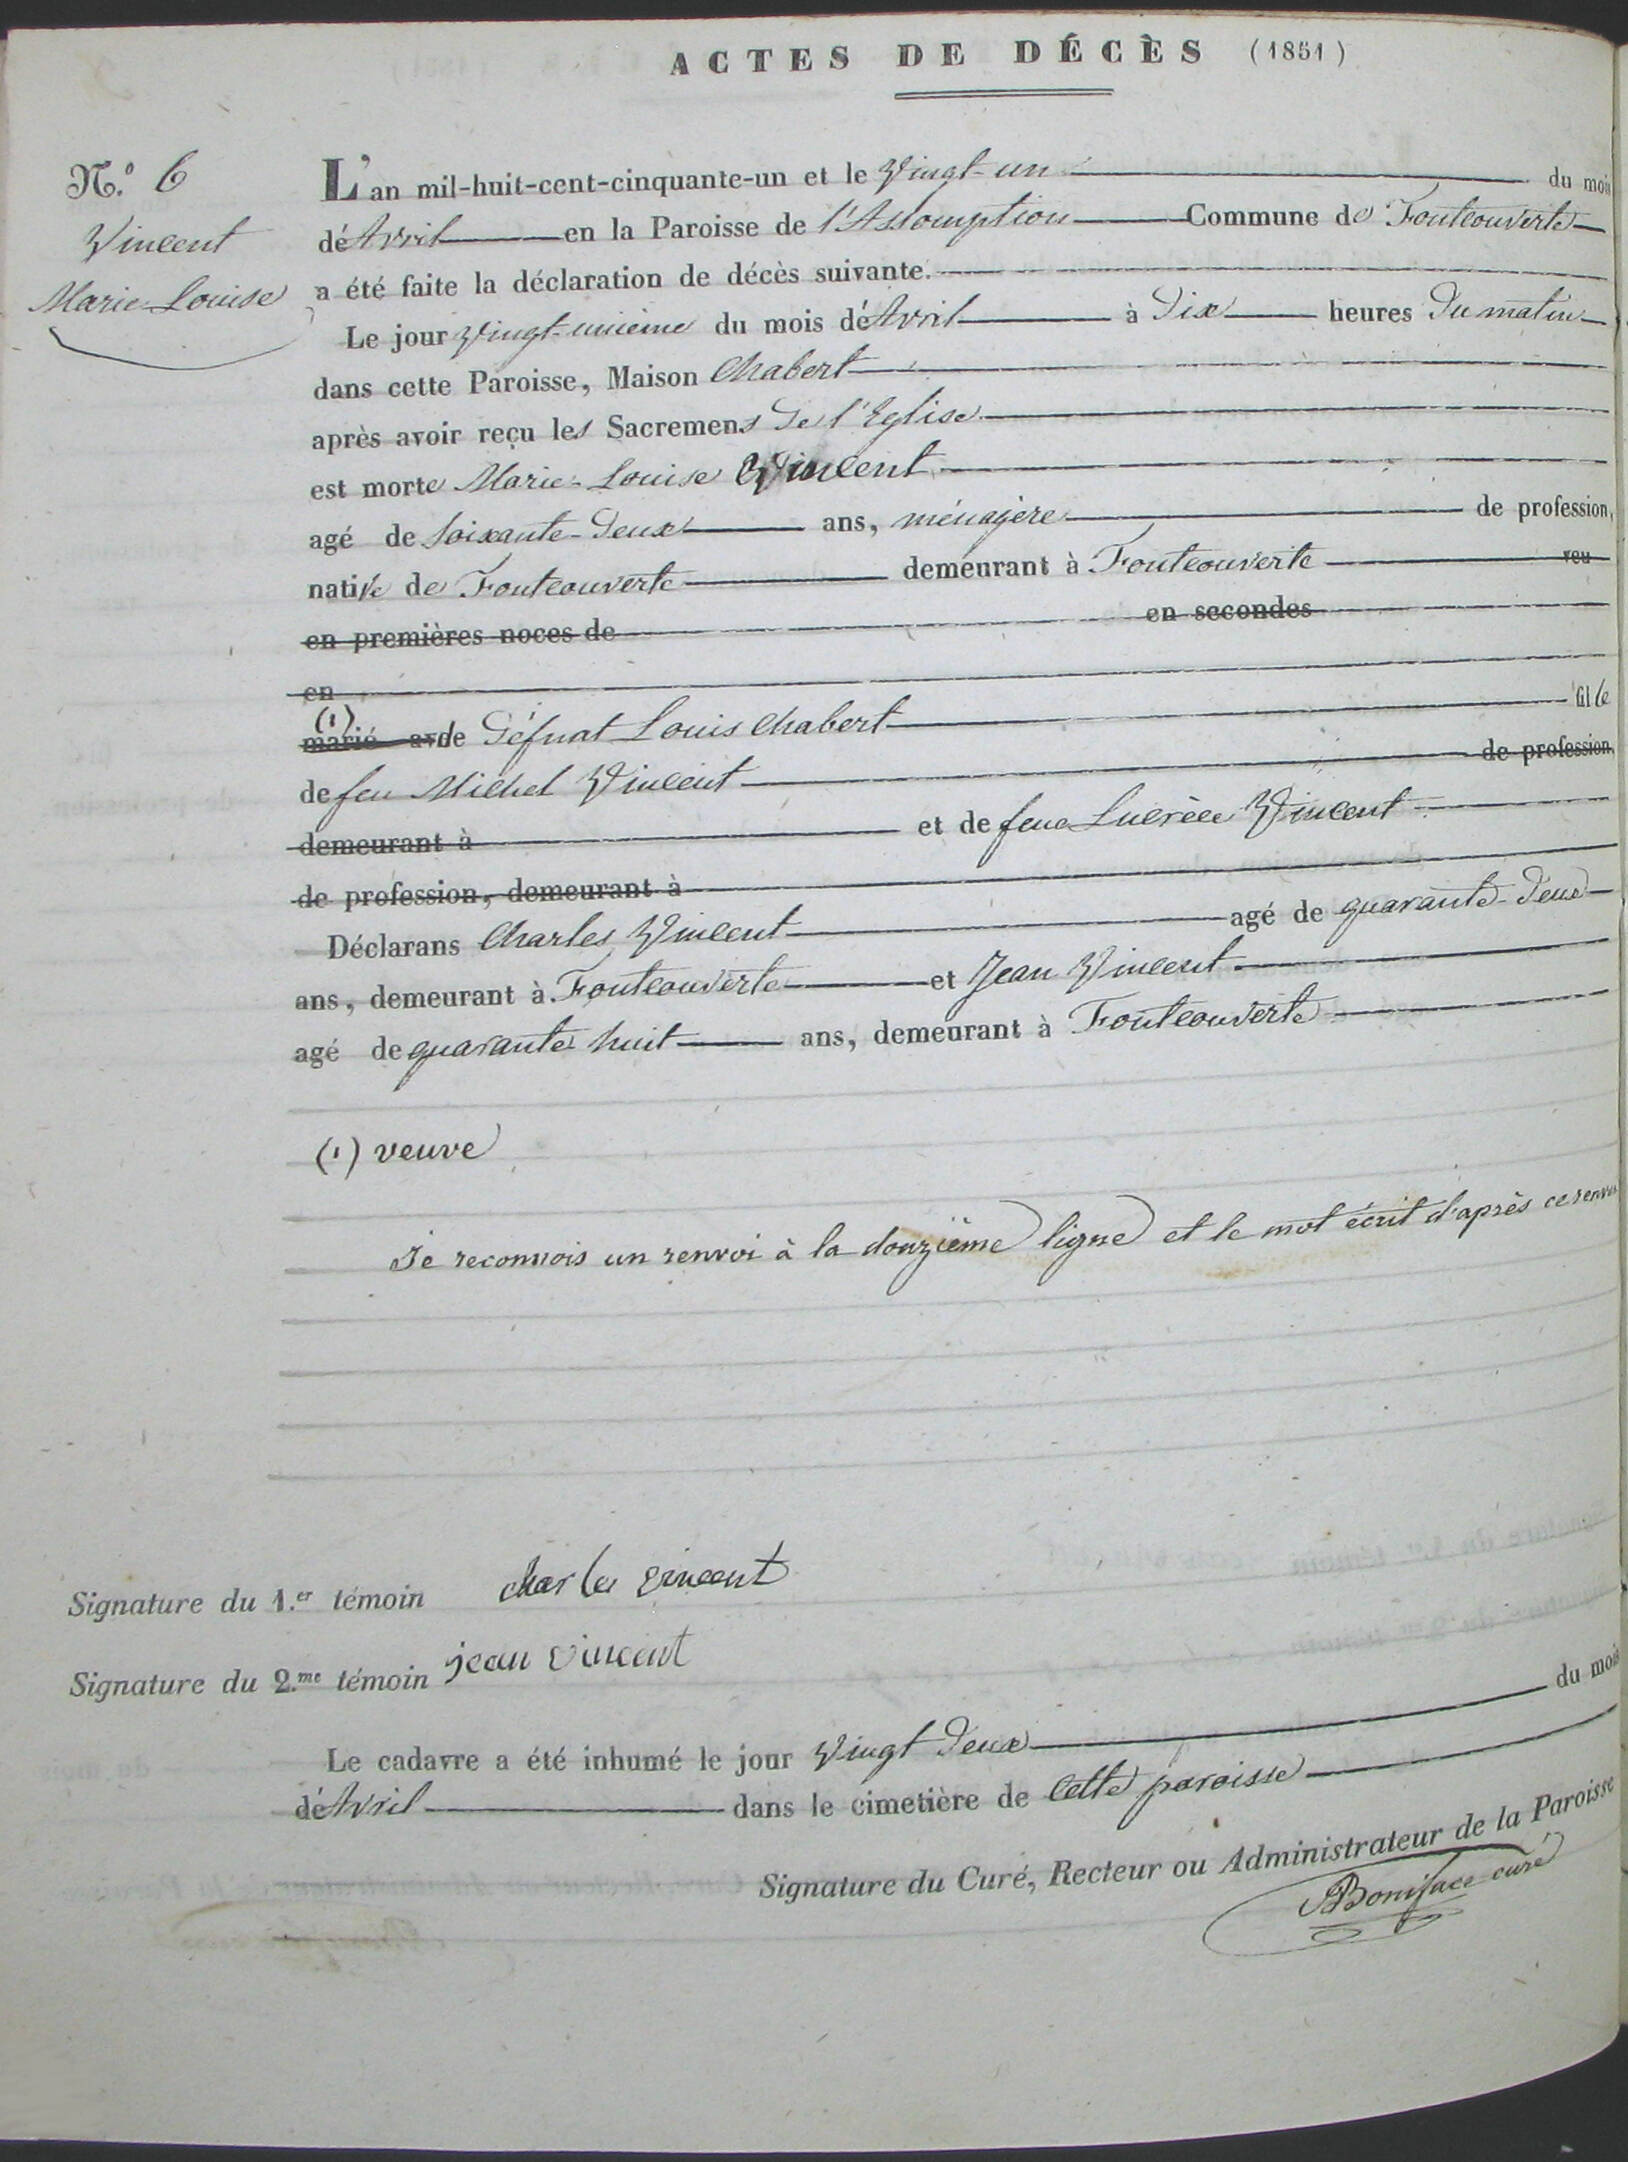 ACTES DE DÉCÈS (1851)
N.° 6
Vincent
Marie-Louise
L'an mil-huit-cent-cinquante-un et le Vingt-un du mois
dé Avril en la Paroisse de l'Assomption Commune de Fontcouverte
a été faite la déclaration de décès suivante.
Le jour vingt-unième du mois dé Avril à Dix heures Du matin
dans cette Paroisse, Maison Chabert
après avoir reçu les Sacremens De l'Eglise
est morte Marie-Louise Vincent
agé de soixante-Deux ans, ménagère de profession,
native de Fontcouverte demeurant à Fontcouverte veu
en premières noces de en secondes
en
(1)
marié avde Défunt Louis Chabert fille
de feu Michel Vincent de profession,
demeurant à et de feue Lucrèce Vincent
de profession, demeurant à
Déclarans Charles Vincent agé de quarante-Deux
ans, demeurant à Fontcouverte et Jean Vincent
agé de quarante huit ans, demeurant à Fontcouverte
(1) veuve
Je reconnois un renvoi à la douzième ligne et le mot écrit d'après ce renvoi
Signature du 1.er témoin charles vincent
Signature du 2.me témoin jean vincent
Le cadavre a été inhumé le jour Vingt Deux du mois
dé Avril dans le cimetière de Cette paroisse
Signature du Curé, Recteur ou Administrateur de la Paroisse
Boniface curé